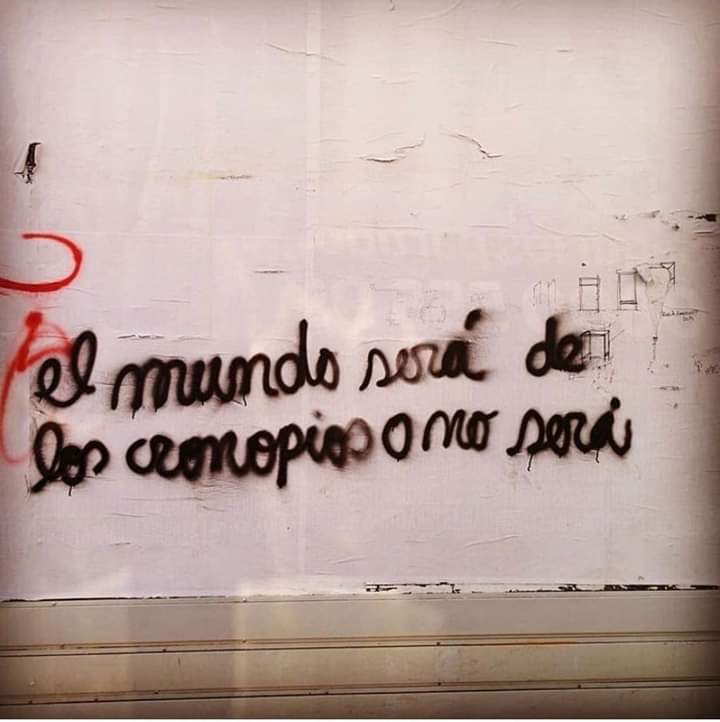 el mundo será de
los cronopios o no será